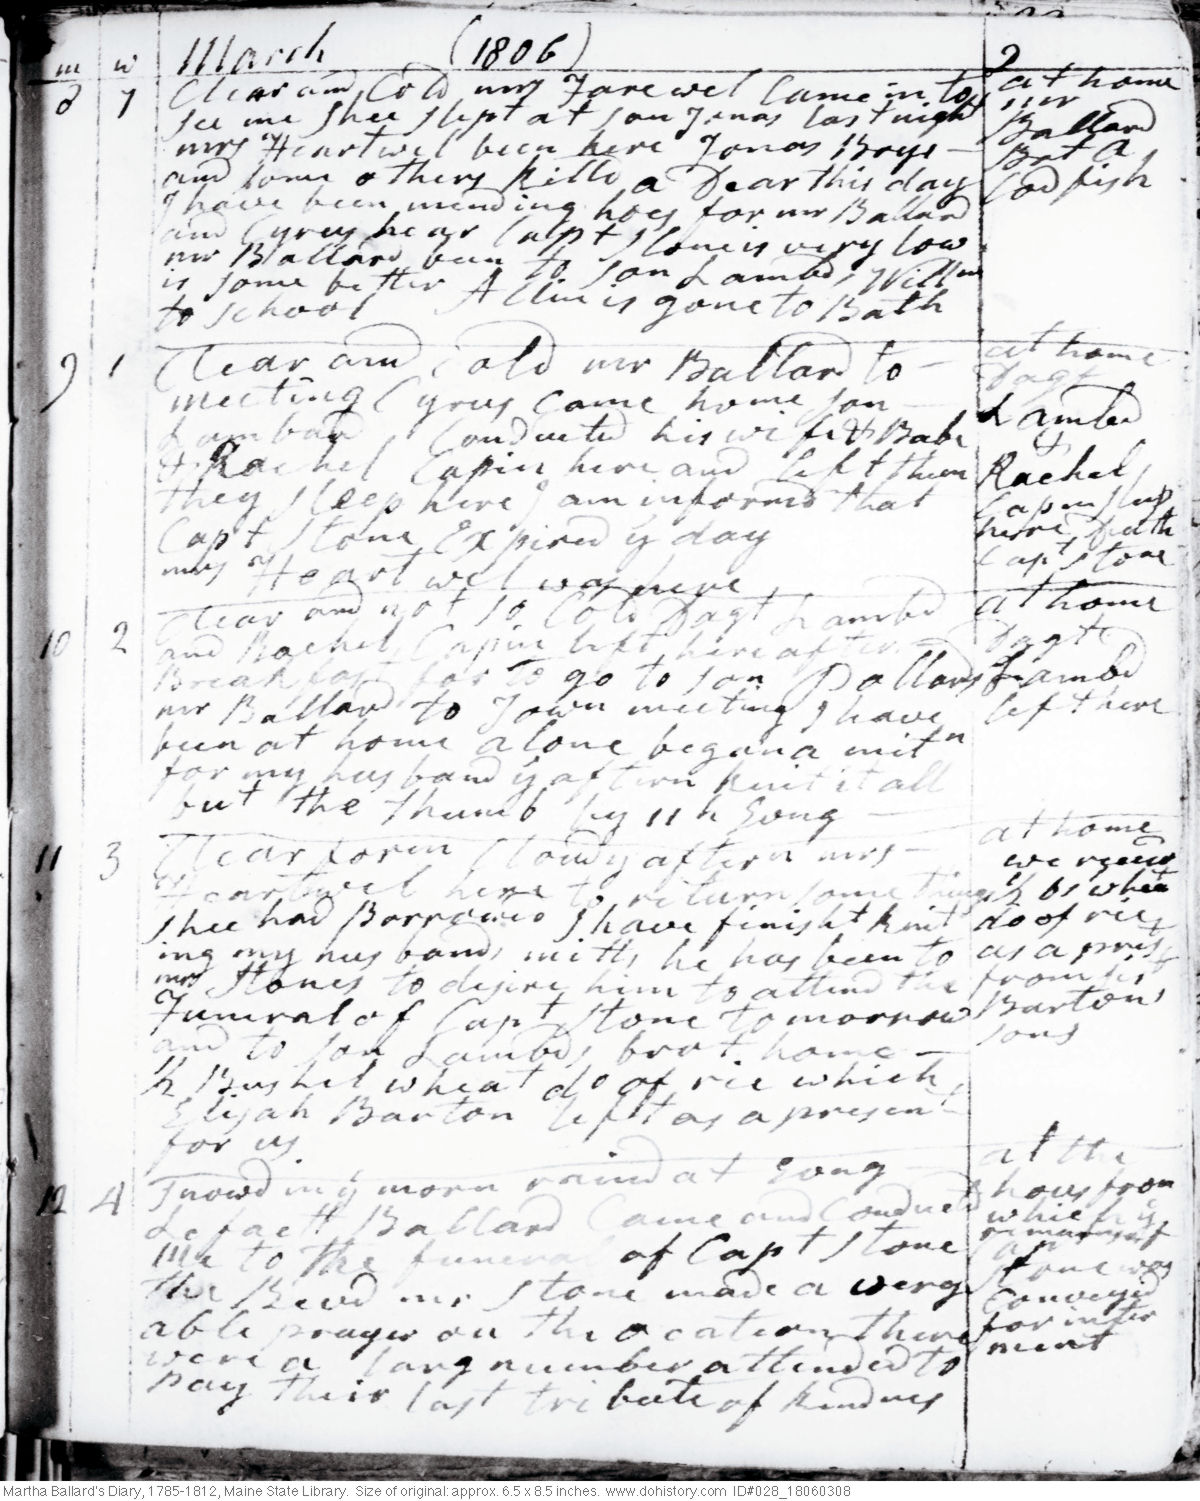 m w March (1806) 2
8 7 Clear and Cold mrs Farewel Came in to
see me Shee slept at son Jonas last night
mrs Heartwel been here Jonas Boys
and some others killd a Dear this day
I have been mending hoes for mr Ballard
and Cyrus hear Capt Stone is very low
mr Ballard been to son Lambds Willm
is some better Allin is gone to Bath
to school
at home
mr
Ballard
Bot a
Codfish
9 1 Clear and Cold mr Ballard to
meeting Cyrus Came home son
Lambard Conducted his wife & Babe
& Rachel Capin here and left them
they sleep here I am informd that
Capt Stone Expired y day
mrs Heartwel was here
at home
Dagt
Lambd
&
Rachel
Capin sleep
here Death
Capt Stone
10 2 Clear and not so Cold Dagt Lambd
and Rachel Capin left here after
Breakfast for to go to son Pollards
mr Ballard to Town meeting I have
been at home alone began a mitn
for my husband y aftern knit it all
but the thumb by 11 h Evng
at home
Dagt
Lambd
left here
11 3 Clear foren Cloudy aftern mrs
Heartwel here to return some things
shee had Borrowed I have finisht knit
ing my husbands mitts he has been to
mrs Stones to desire him to attend the
Funeral of Capt Stone tomorrow
and to son Lambds brot home
½ Bushel wheat do of rie which
Elijah Barton left as a present
for us
at home
we receivd
½ bs wheat
do of rie
as a prest
from sis
Bartons
sons
12 4 Snowd in y morn raind at Evng
Lafaett Ballard Came and Conducted
me to the funeral of Capt Stone
the Revd mr Stone made a very
able prayer on the ocation there
were a larg number attended to
pay their last tribute of kindnes
at the
hous from
which y
remains of
Capt
Stone was
Conveyed
for inter
ment
Martha Ballard's Diary, 1785-1812, Maine State Library. Size of original: approx. 6.5 x 8.5 inches. www.dohistory.com ID#028_18060308